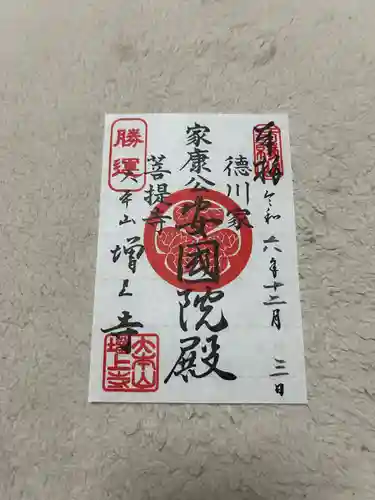 奉拝
令和六年十二月三日
德川家
家康公
安國院殿
菩提寺
大本山
増上寺
勝運
大本山
増上寺